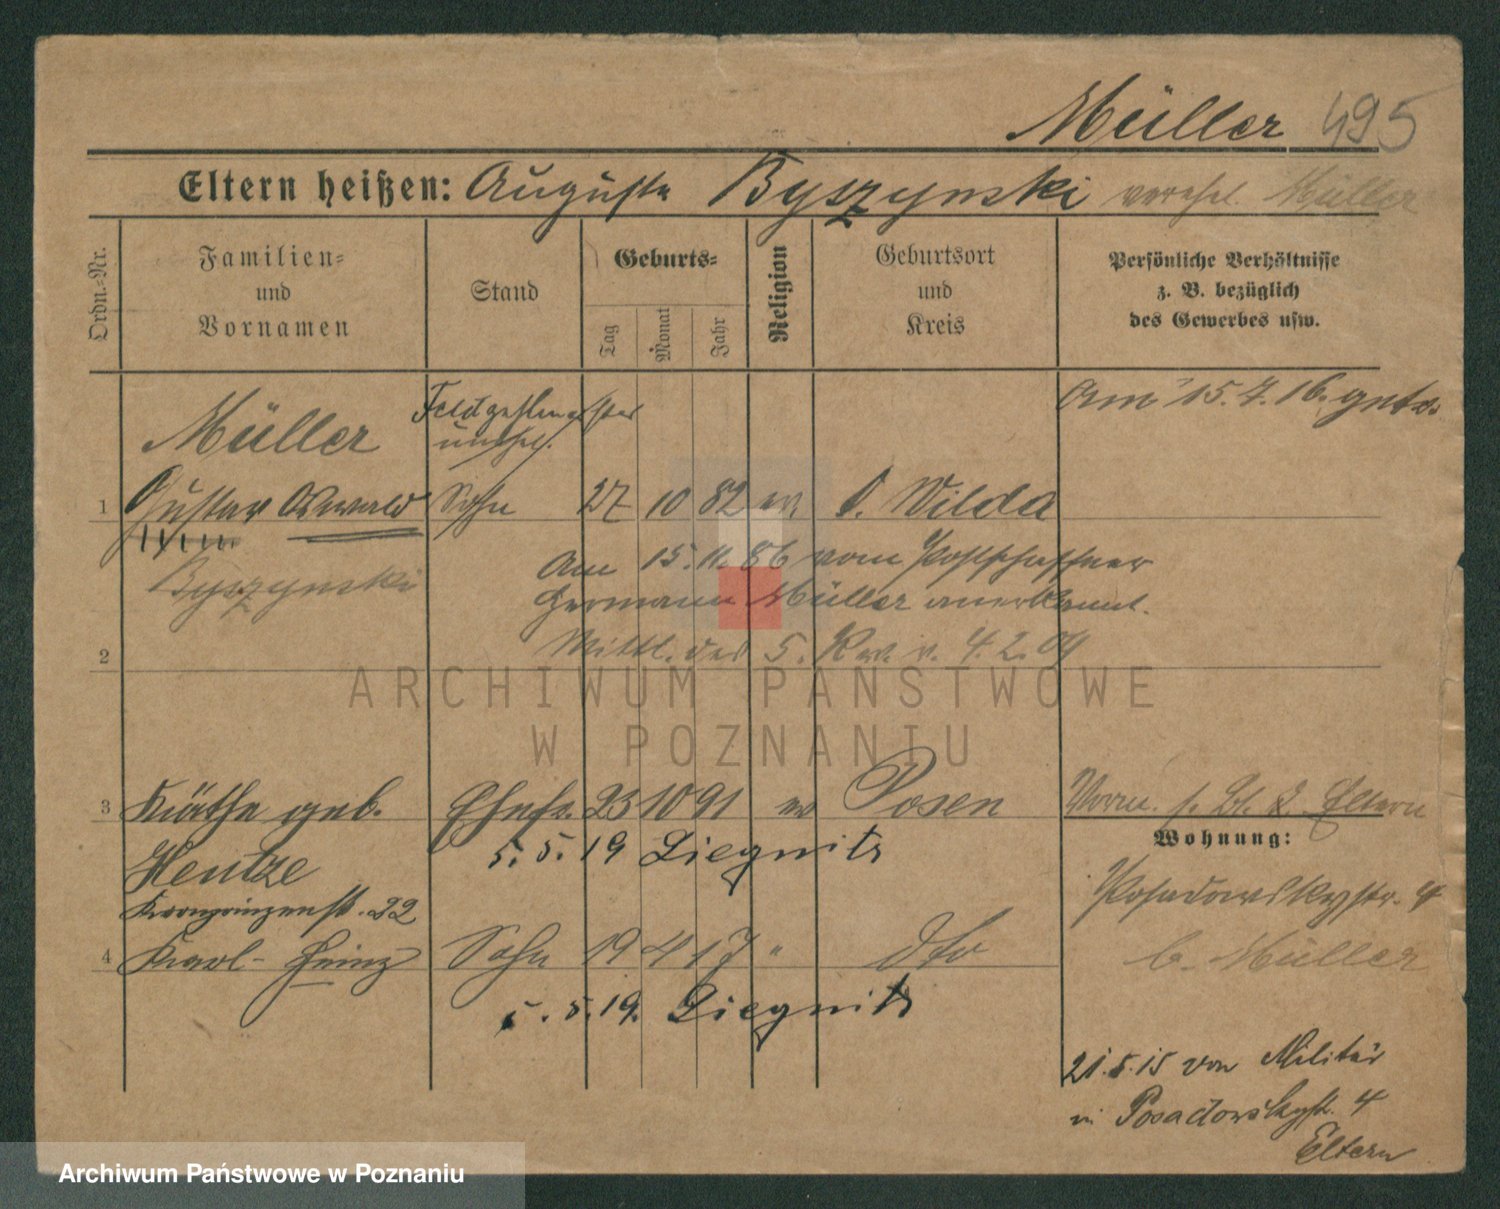 Müller 495
Eltern heißen: Auguste Byszynski verehel. Müller
Ordn.-Nr.
Familien-
und
Vornamen
Stand
Geburts-
Tag
Monat
Jahr
Religion
Geburtsort
und
Kreis
Persönliche Verhältnisse
z. B. bezüglich
des Gewerbes usw.
Müller
Am 15.7.16.
1 Gustav Oswald Sohn 27 10 82 ev. Wilda
Byszynski
Am 15.11.86 vom Postschaffner
Hermann Müller anerkannt.
2
Mittl. des 5. v. 4.2.09
3 Käthe geb. Ehefr. 23 10 91 ev Posen
Eltern
Hentze
5.5.19 Liegnitz
Wohnung:
Kronprinzenstr. 22
Posadowskystr. 4
4 Karl-Heinz Sohn 19 4 17 " dto
b. Müller
5.5.19. Liegnitz
21.5.15 von Militär
in Posadowskystr. 4
Eltern
ARCHIWUM PAŃSTWOWE
W POZNANIU
Archiwum Państwowe w Poznaniu